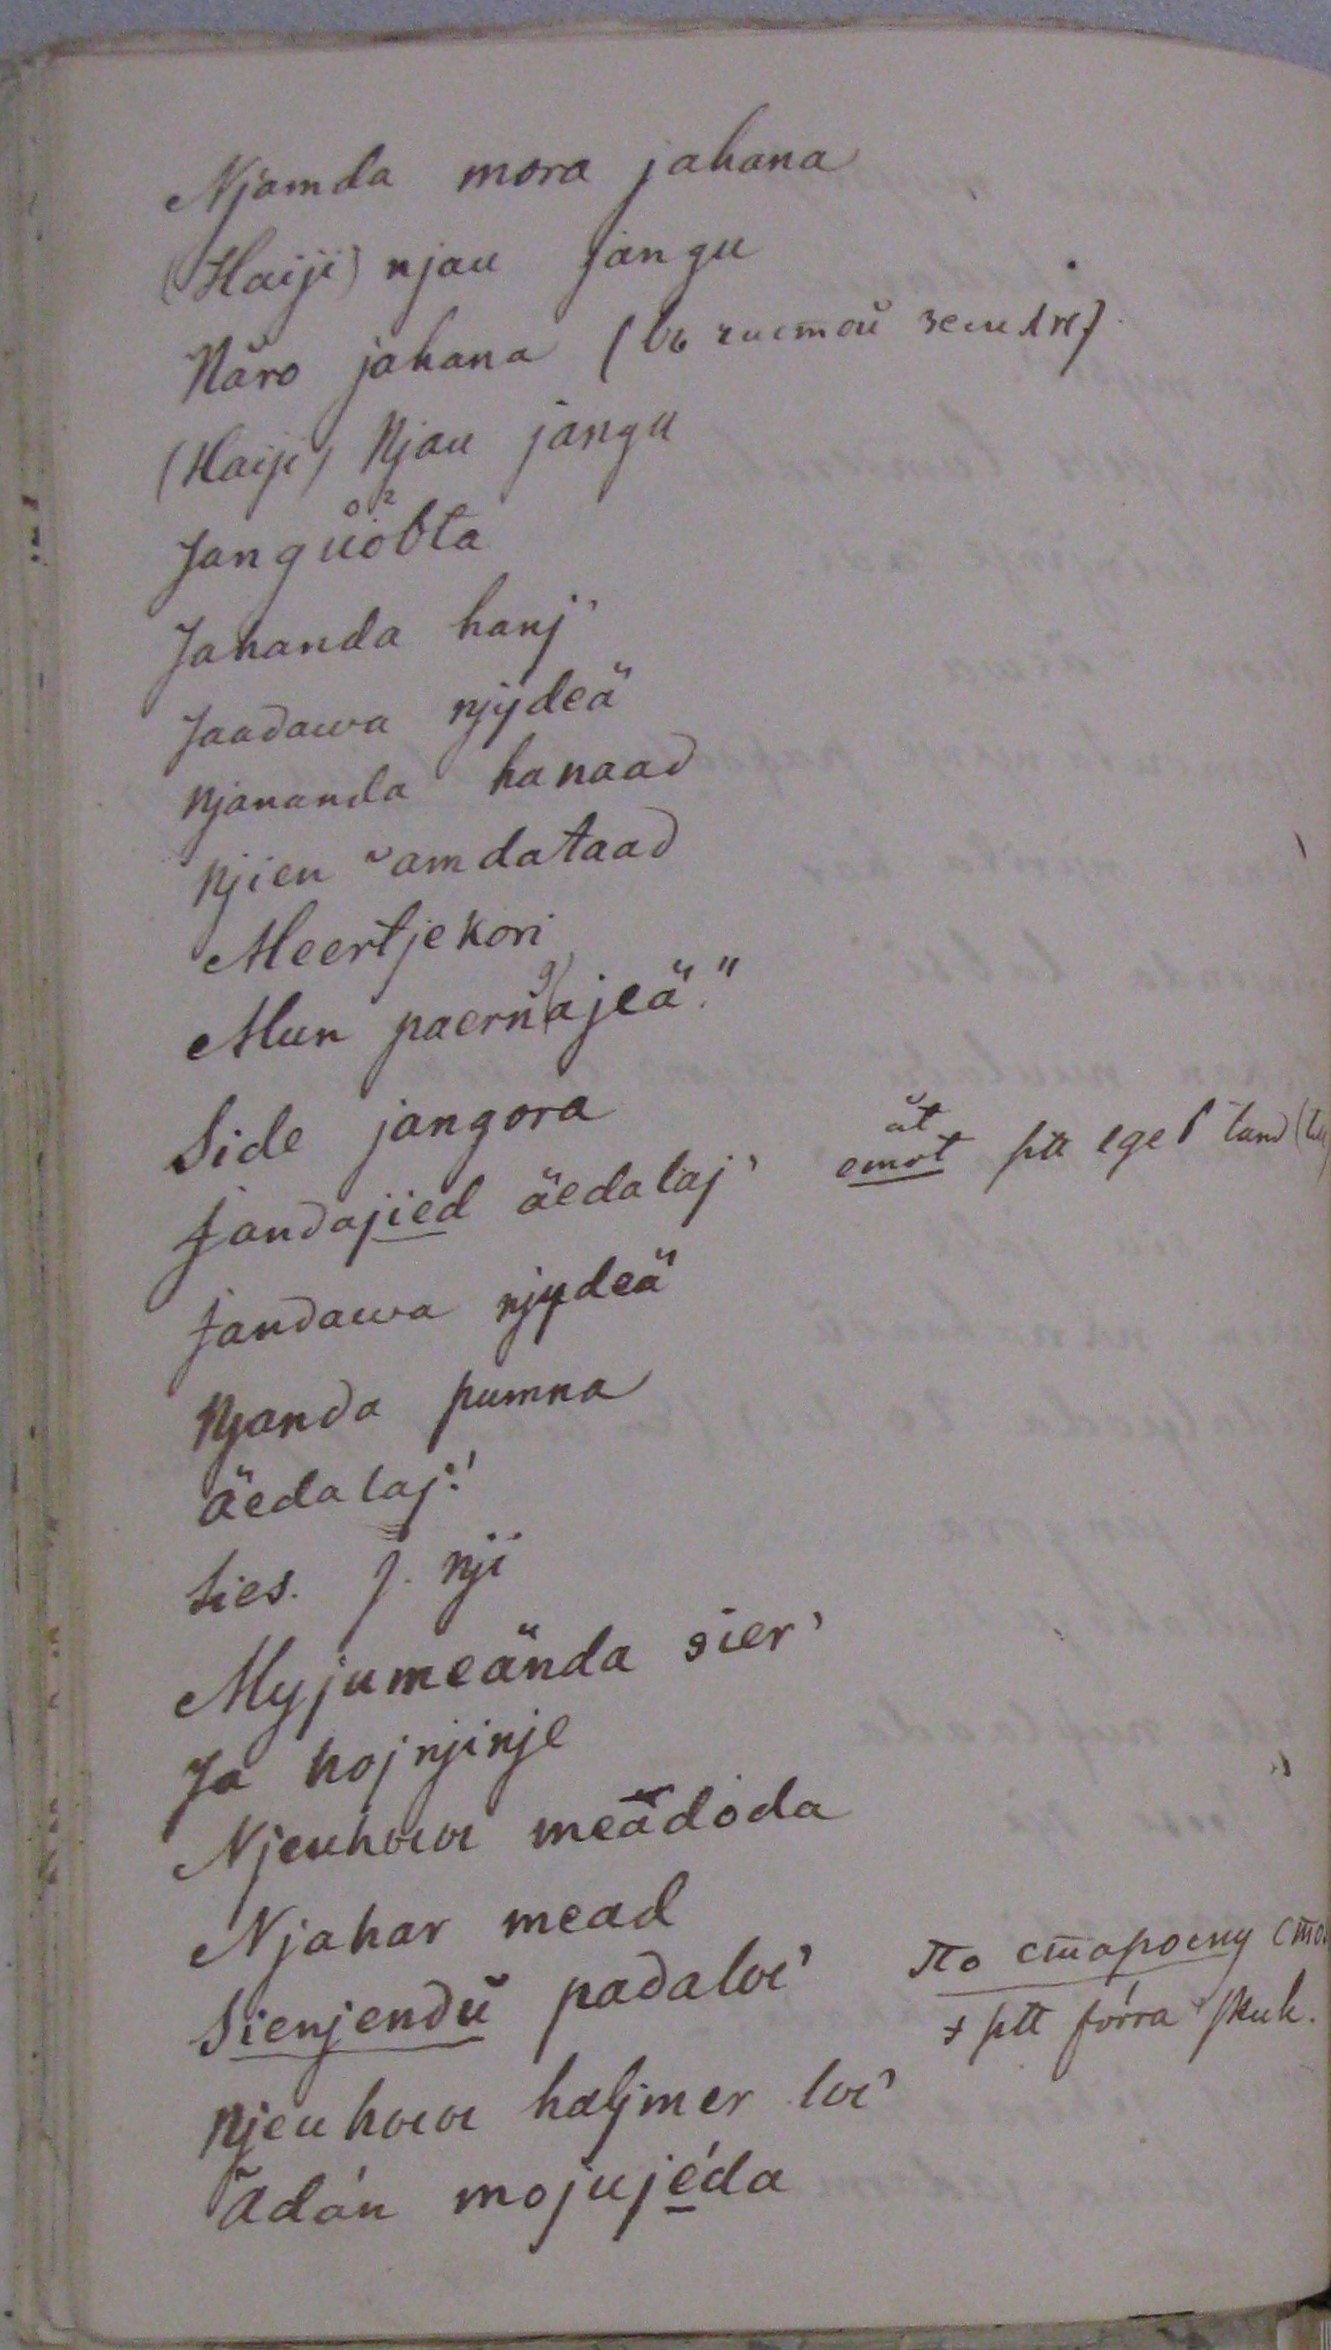 Njamda mora jahana
(Haiji) njau jangu
Näro jahana (въ чистой землѣ)
(Haiji) Njau jangu
Jangüöbta
Jahanda hanj'
Jaadawa njydeä
Njananda hanaad
Njien amdataad
Meertjekori
Mun paernajeä."
Side jangora
Jandajied äedalaj' emot åt sitt eget land
Jandawa njydeä
Njanda pumna
äedalaj!
Sies. J. nji
Myjumeända sier'
Ja hojnjinje
Njeuhoιoι meädoda
Njahar mead
Sienjendü padaloι' По старому
+ sitt förra skick.
Njeuhoιoι haljmer loι'
Adán mojujéda